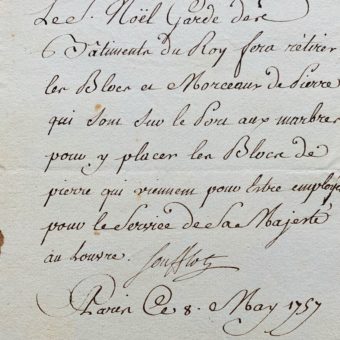 Le S. Noël Garde des
Bâtiments du Roy fera rétirer
les Blocs et Morceaux de Pierre
qui sont sur le Port aux marbres
pour y placer les Blocs de
pierre qui viennent pour Estre employé
pour le Service de Sa Majesté
au Louvre. Soufflot
Paris Ce 8. May 1757